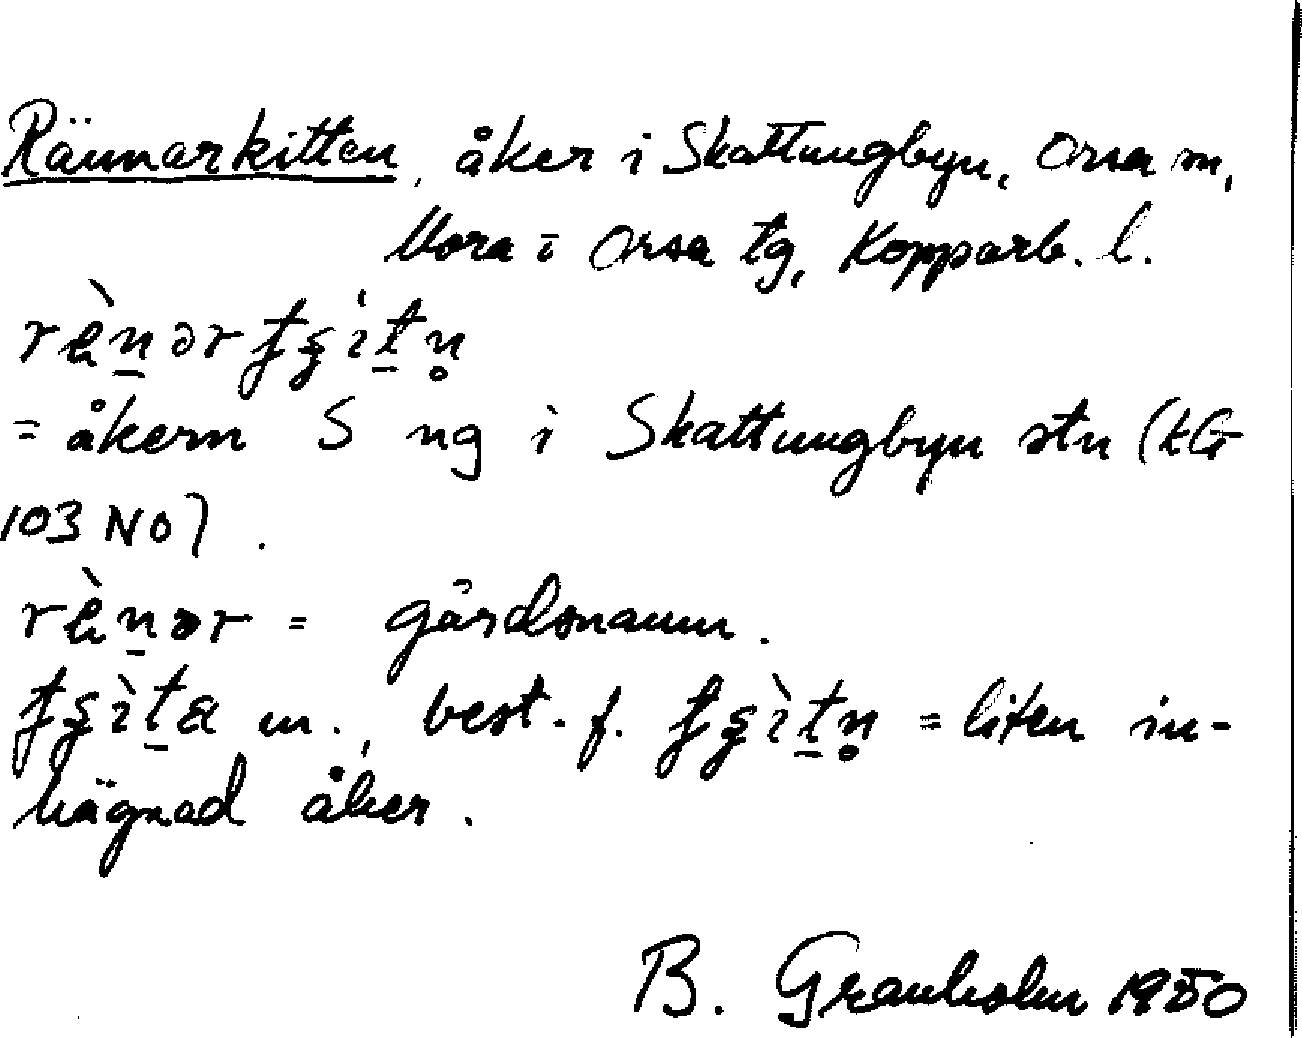 Rännarkitten, åker i Skattungbyn, Orsa sn,
Mora o Orsa tg, Kopparb. l.
= åkern S ng i Skattungbyn stn (kG
103 NO).
= gårdsnamn.
m., best. f. = liten in-
hägnad åker.
B. Granholm 1950